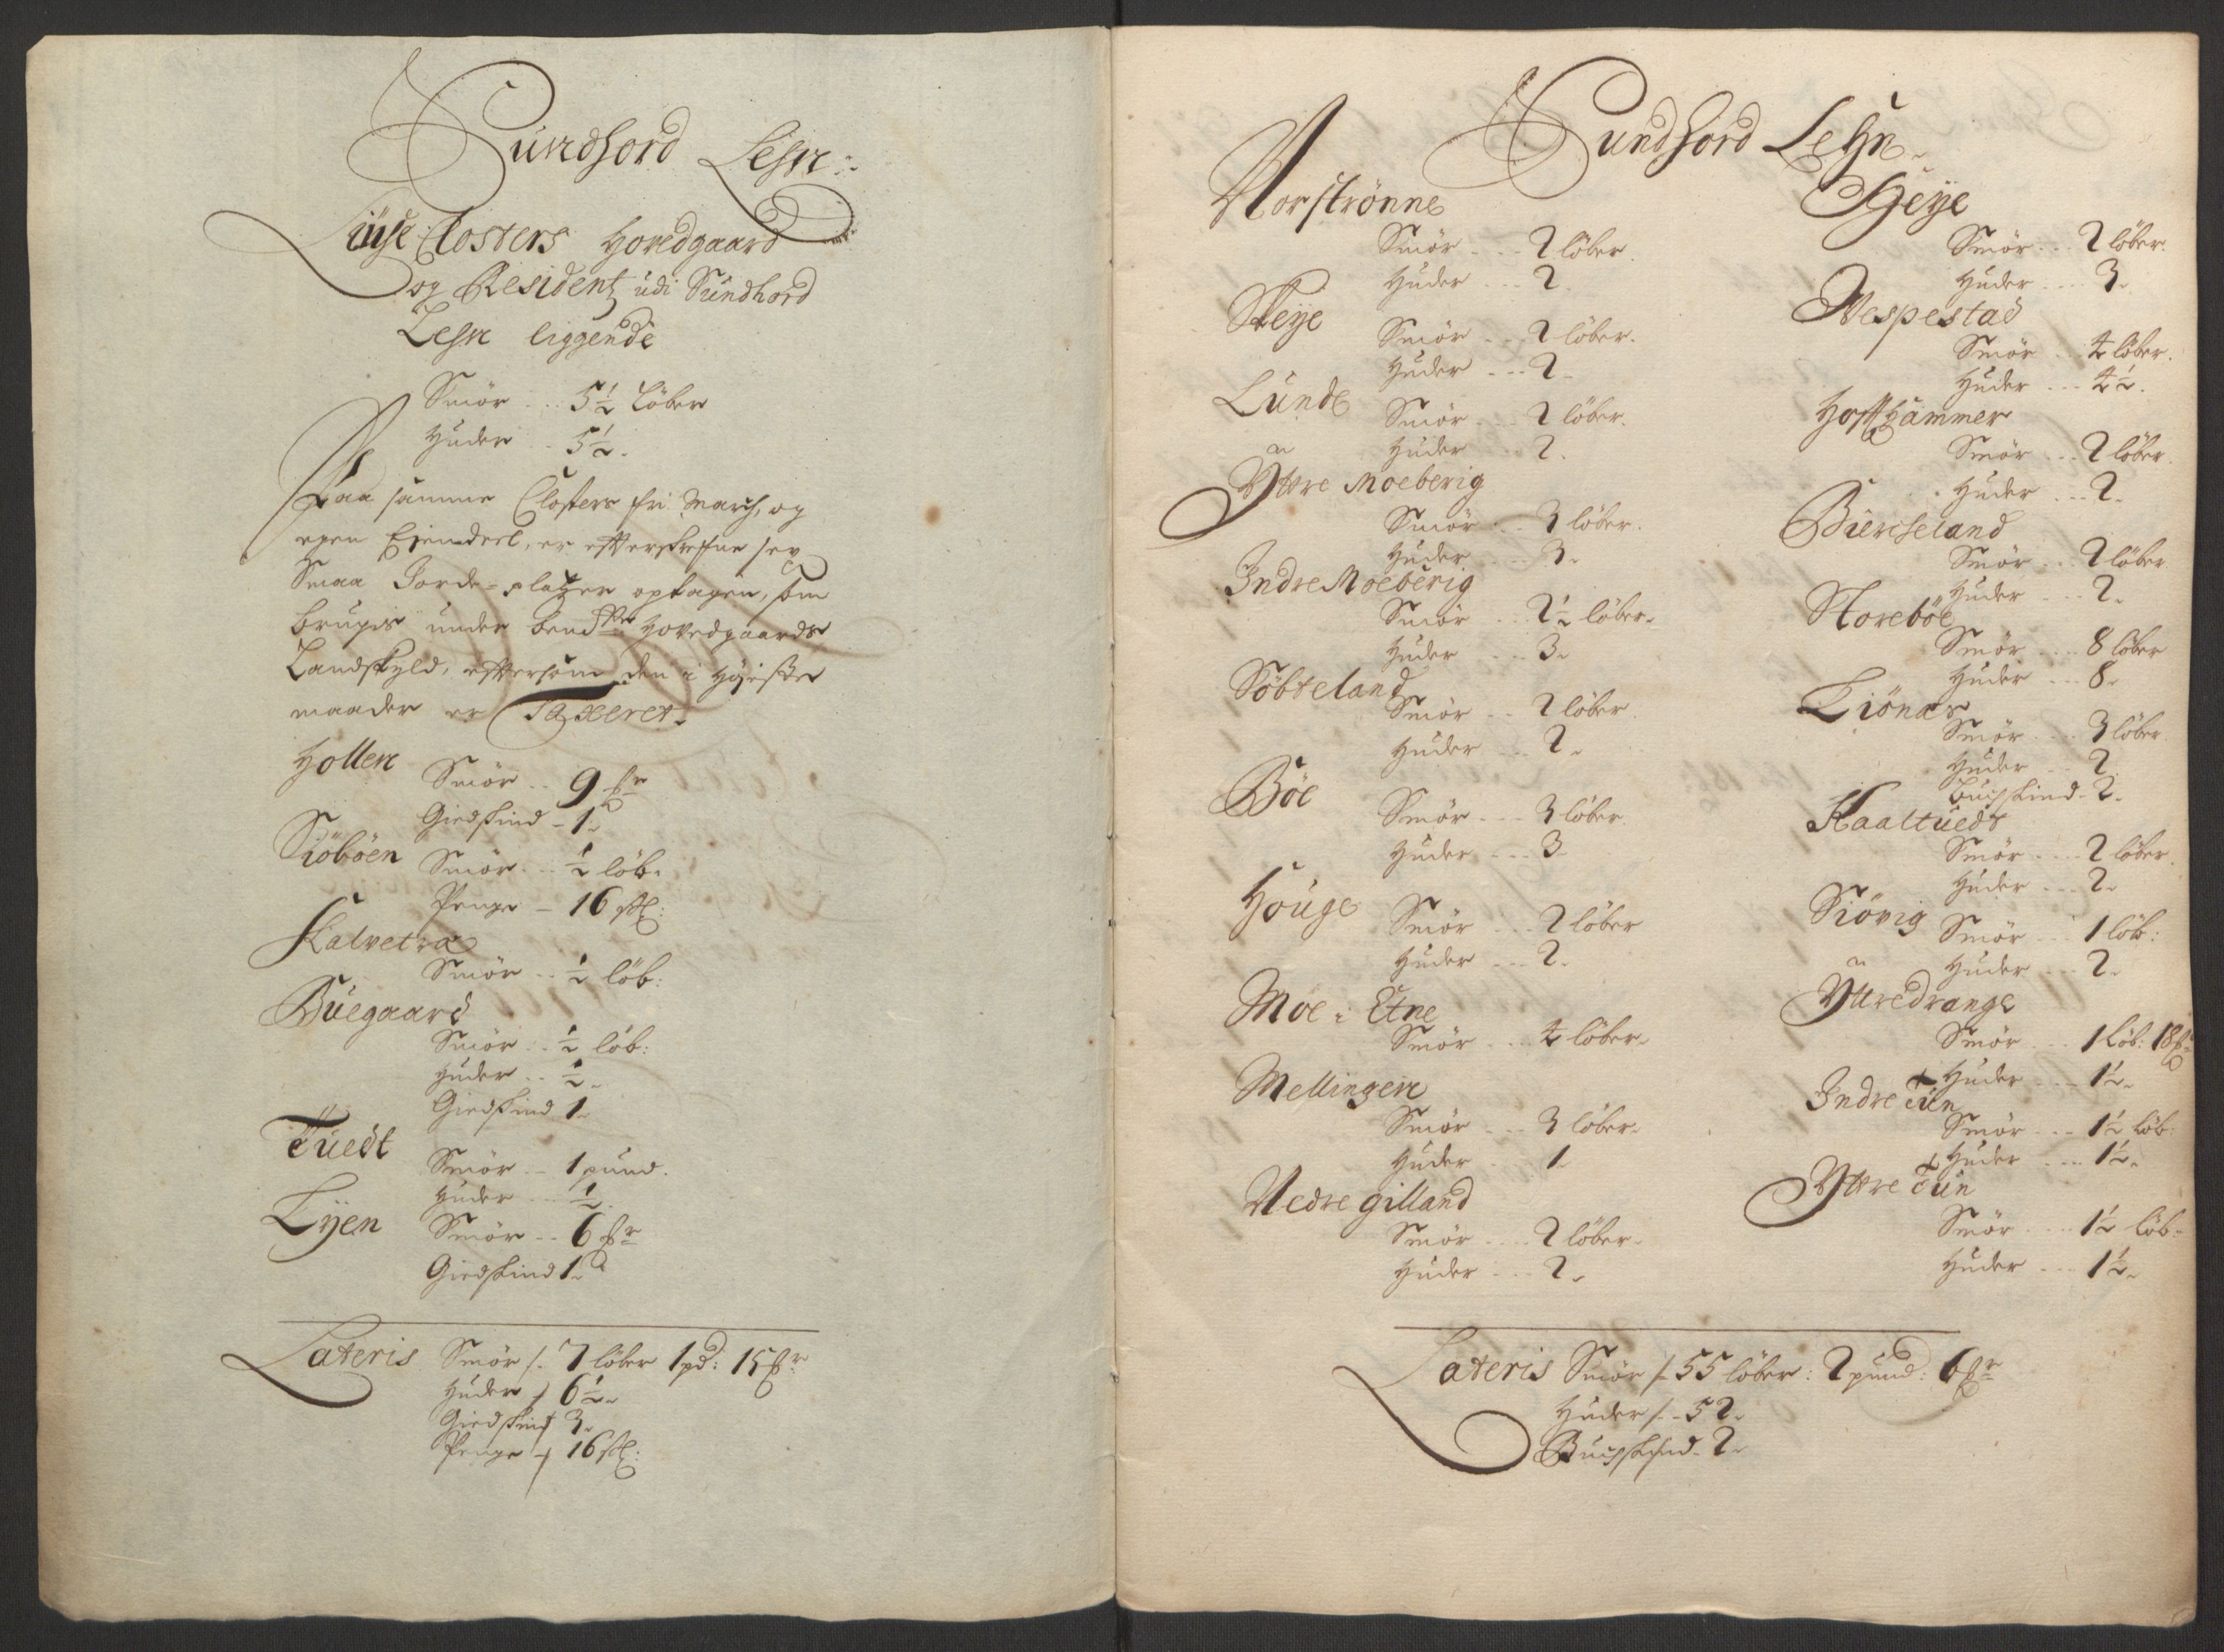 Sundhord Lehn
Lüse Closters Hovedgaard
og Residentz udi Sundhord
Lehn liggende
Smör - 5½ Löber
Huder - 5½.
Paa samme Closters fri March, og
egen Eiendeel, er efterskrefne sex
Smaa Jorde-platzer optagen, som
brugis under bemte Hovedgaards
Landskyld, eftersom den i Höieste
maader er Taxeret.
Hollen
Smör - 9
Giedskind - 1
Siöböen
Smör - ½ löb.
Penge - 16
Kalvetræ
Smör - ½ löb:
Buegaard
Smör - ½ löb:
Huder - ½
Giedskind 1
Tuedt
Smör - 1 pund.
Huder - ½
Lÿen
Smör - 6
Giedskind 1
Lateris Smör /. 7 löber 1 pd: 15
Huder / 6½
Giedskind 3
Penge / 16
Sundhord Lehn
Norströnne
Smör - 2 löber.
Huder - 2
Steÿe
Smör - 2 löber.
Huder - 2
Lunde
Smör - 2 löber.
Huder 2.
Ÿttre Moeberig
Smör - 3 löber.
Huder - 3.
Indre Moeberig
Smör - 2½ löber.
Huder - 3
Söbteland
Smör - 2 löber
Huder - 2
Böe
Smör - 3 löber.
Huder - 3
Houge
Smör - 2 löber
Huder - 2.
Moe i Etne
Smör - 4 löber
Mellingen
Smör - 3 löber
Huder - 1
Nedre gilland
Smör - 2 löber
Huder - 2
Heÿe
Smör - 2 löber.
Huder - 3
Wespestad
Smör - 4 löber.
Huder - 4½.
Hoffhammer
Smör - 2 löber
Huder - 2
Bierckeland
Smör - 2 löber
Huder - 2
Storeböe
Smör - 8 löber
Huder - 8
Liönæs
Smör - 3 löber
Huder - 2
Buchskind - 2
Kaaltuedt
Smör - 2 löber.
Huder - 2
Siövig
Smör - 1 löb:
Huder - 2
Ÿttredrange
Smör - 1 Löb: 18
Huder - 1½
Indre Tun
Smör - 1½ löb:
Huder - 1½
Ÿttre Tun
Smör - 1½ löb:
Huder - 1½
Lateris Smör /. 55 löber: 2 pund: 6
Huder /. 52
Buchskind - 2